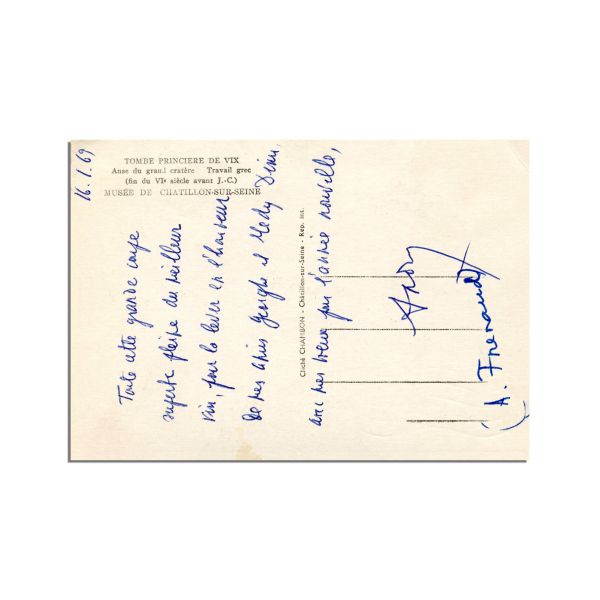 TOMBE PRINCIERE DE VIX
Anse du grand cratère Travail grec
(fin du VIe siècle avant J.-C.)
MUSÉE DE CHATILLON-SUR-SEINE
16.1.69
Toute cette grande coupe
superbe pleine du meilleur
vin, pour la lever en l'honneur
de mes amis Georghe et Mady Dinu,
avec mes vœux pour l'année nouvelle,
Cliché CHAMBON - Châtillon-sur-Seine - Rep. int.
(A. Frenaud)